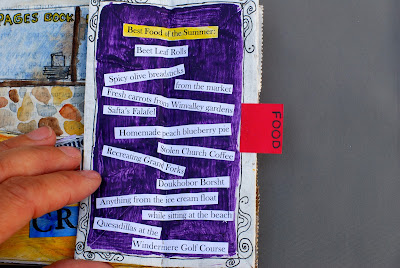 PAGES BOOK
Best Food of the Summer:
Beet Leaf Rolls
Spicy olive breadsticks
from the market
Fresh carrots from Winvalley gardens
Safta's Falafel
Homemade peach blueberry pie
Stolen Church Coffee
Recreating Grand Forks
Doukhobor Borsht
Anything from the ice cream float
while sitting at the beach
Quesadillas at the
Windermere Golf Course
FOOD